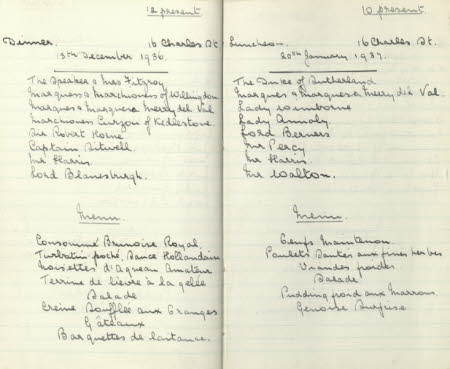 12 present
Dinner. 16 Charles St.
5th December 1936.
The Speaker & Mrs Fitzroy
Marquess & Marchioness of Willingdon
Marques & Marquesa Merry del Val
Marchioness Curzon of Kedlestone
Sir Robert Horne
Captain Sitwell
Mr Harris
Lord Blanesburgh.
Menu.
Consommé Brunoise Royal.
Turbatin poché, Sauce Hollandaise
Noisettes d'Agneau Amateur
Terrine de lievre à la gelée
Salade
Crème Soufflée aux Oranges
Gâteaux
Barquettes de laitance.
10 present
Luncheon. 16 Charles St.
20th January 1937.
The Duke of Sutherland
Marques & Marquesa Merry del Val.
Lady Wimborne
Lady Annaly
Lord Berners
Mr Percy
Mr Harris.
Mr Walton.
Menu.
Oeufs Maintenon.
Poulets Sautes aux fines herbes
Viandes froides
Salade
Pudding froid aux Marrons
Genoise Surprise